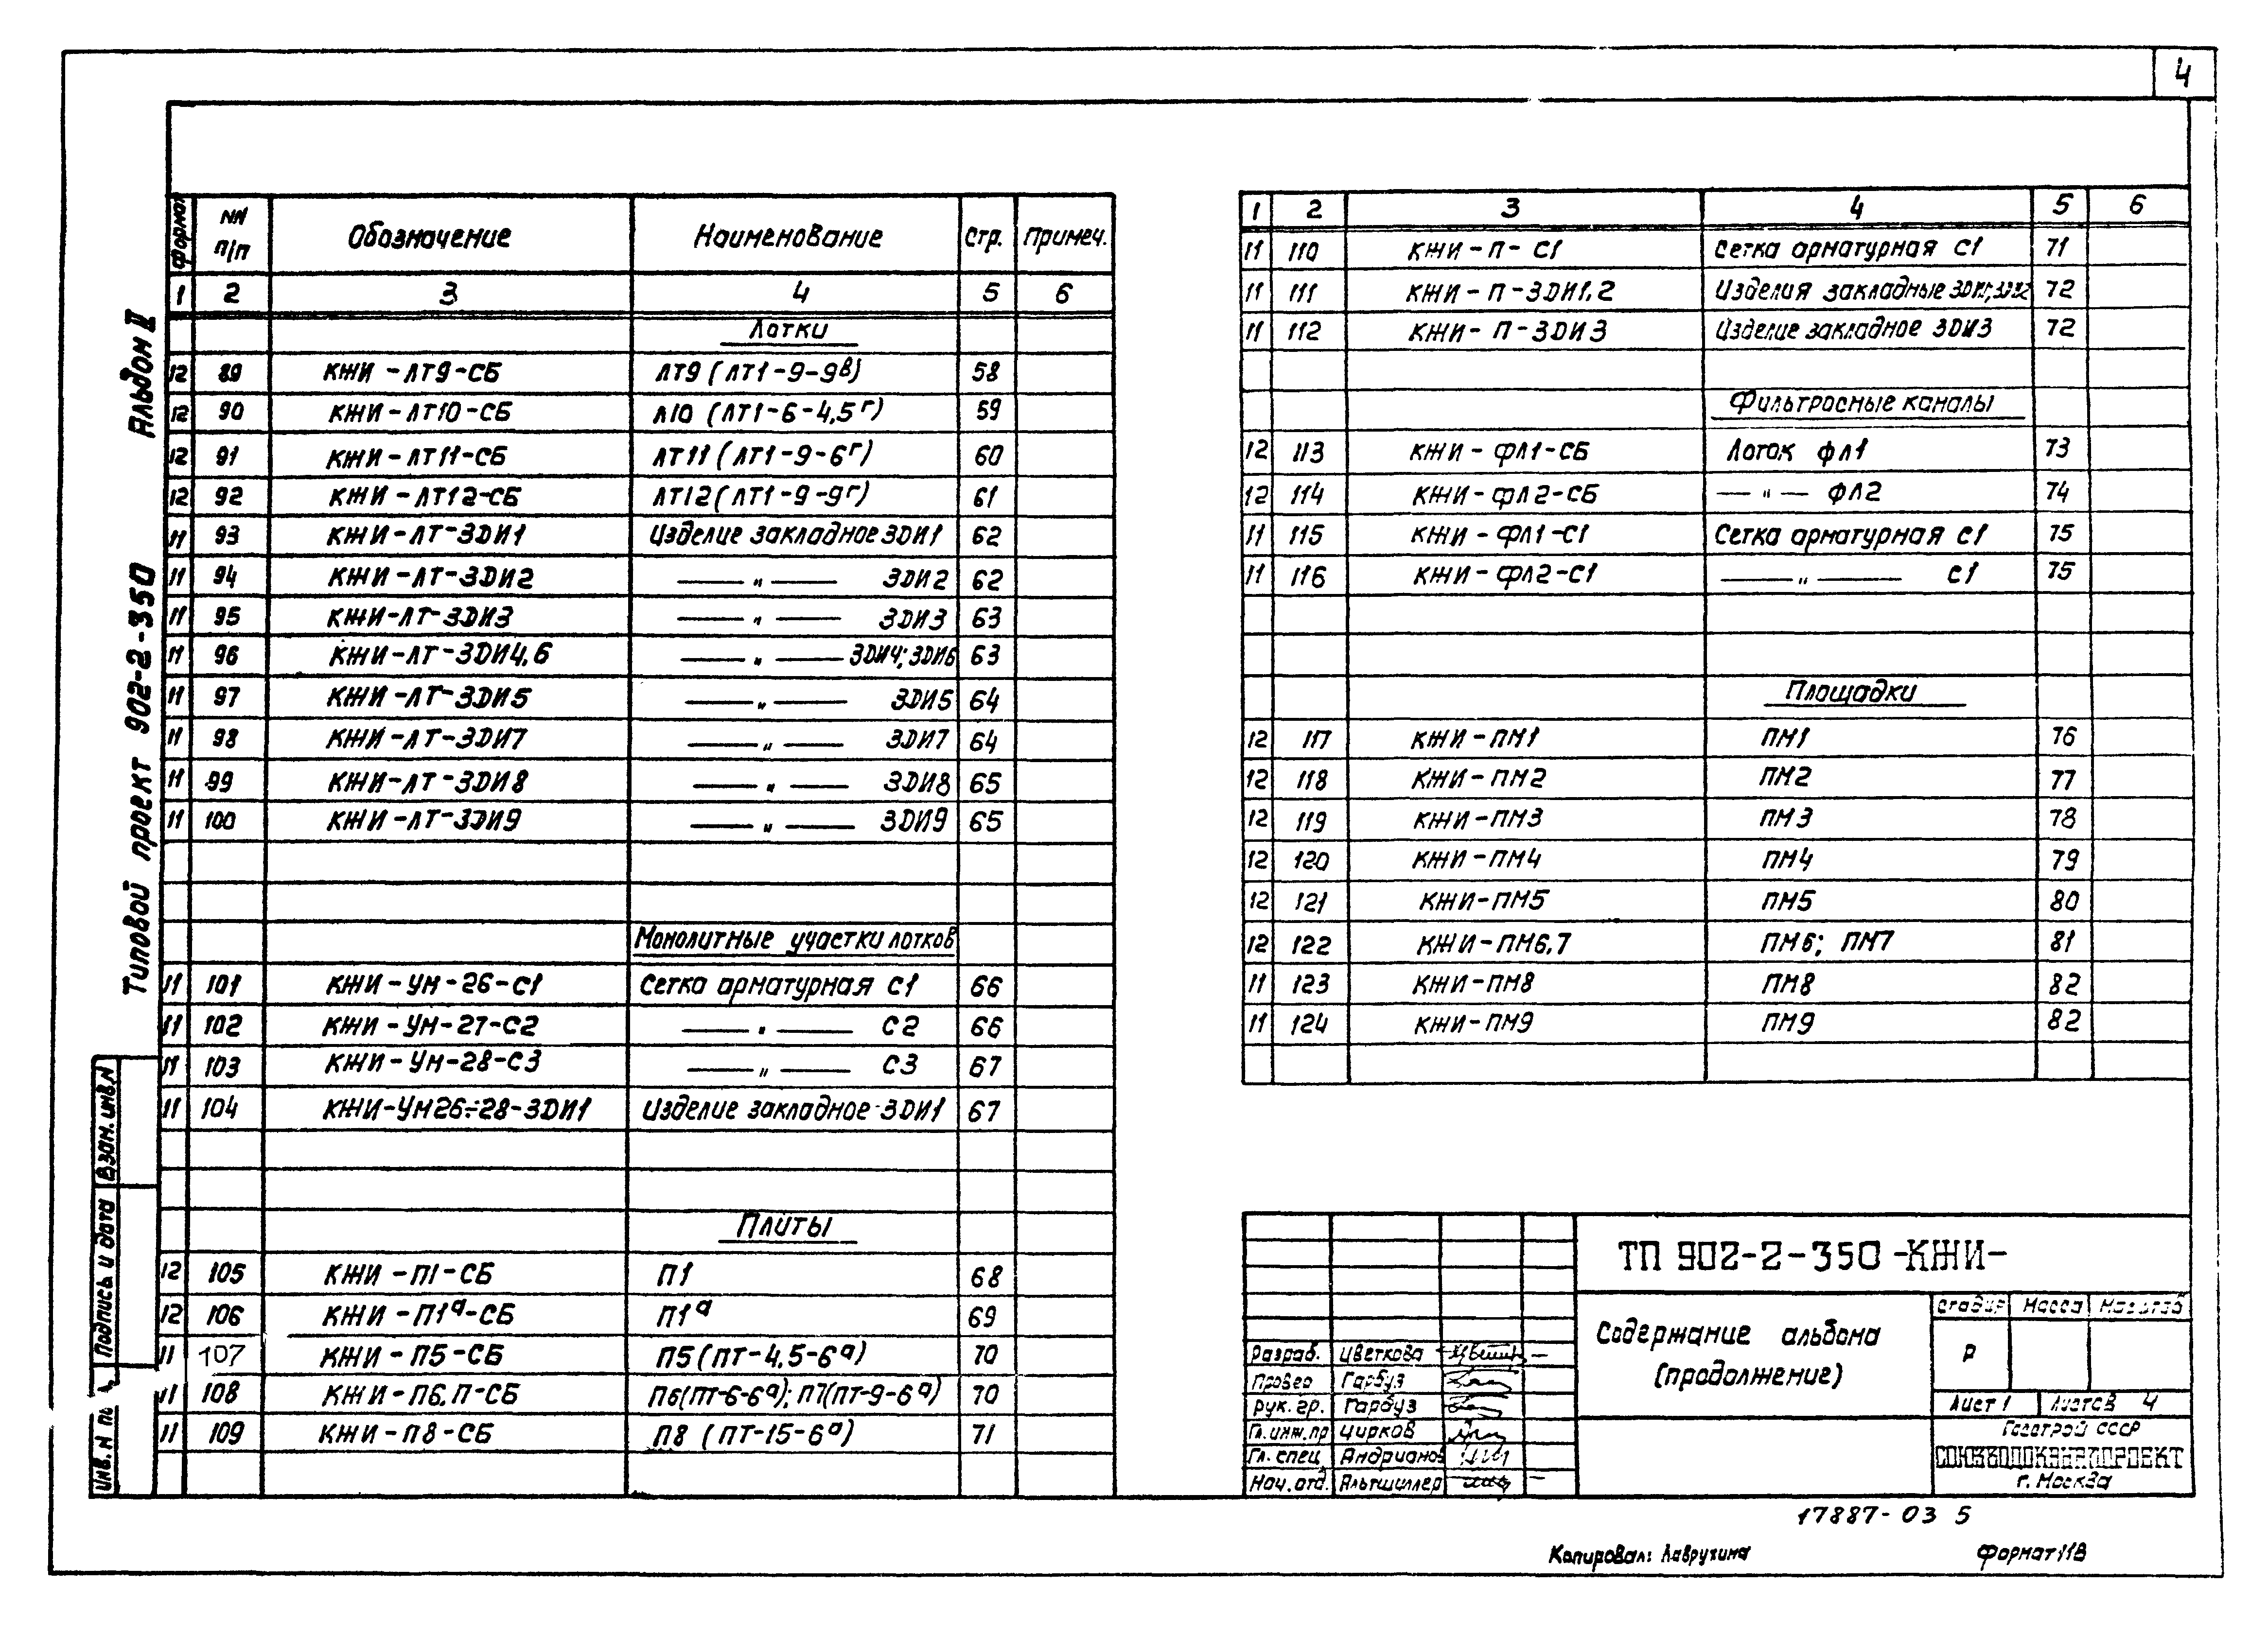 4
Альбом II
Типовой проект 902-2-350
Формат | NN п/п | Обозначение | Наименование | Стр. | Примеч.
1 | 2 | 3 | 4 | 5 | 6
Лотки
12 | 89 | КЖИ-ЛТ9-СБ | ЛТ9 (ЛТ1-9-9в) | 58
12 | 90 | КЖИ-ЛТ10-СБ | Л10 (ЛТ1-6-4,5г) | 59
12 | 91 | КЖИ-ЛТ11-СБ | ЛТ11 (ЛТ1-9-6г) | 60
12 | 92 | КЖИ-ЛТ12-СБ | ЛТ12 (ЛТ1-9-9г) | 61
11 | 93 | КЖИ-ЛТ-ЗДИ1 | Изделие закладное ЗДИ1 | 62
11 | 94 | КЖИ-ЛТ-ЗДИ2 | — " — ЗДИ2 | 62
11 | 95 | КЖИ-ЛТ-ЗДИ3 | — " — ЗДИ3 | 63
11 | 96 | КЖИ-ЛТ-ЗДИ4,6 | — " — ЗДИ4; ЗДИ6 | 63
11 | 97 | КЖИ-ЛТ-ЗДИ5 | — " — ЗДИ5 | 64
11 | 98 | КЖИ-ЛТ-ЗДИ7 | — " — ЗДИ7 | 64
11 | 99 | КЖИ-ЛТ-ЗДИ8 | — " — ЗДИ8 | 65
11 | 100 | КЖИ-ЛТ-ЗДИ9 | — " — ЗДИ9 | 65
Монолитные участки лотков
11 | 101 | КЖИ-УМ-26-С1 | Сетка арматурная С1 | 66
11 | 102 | КЖИ-УМ-27-С2 | — " — С2 | 66
11 | 103 | КЖИ-УМ-28-С3 | — " — С3 | 67
11 | 104 | КЖИ-УМ26÷28-ЗДИ1 | Изделие закладное ЗДИ1 | 67
Плиты
12 | 105 | КЖИ-П1-СБ | П1 | 68
12 | 106 | КЖИ-П1а-СБ | П1а | 69
11 | 107 | КЖИ-П5-СБ | П5 (ПТ-4,5-6а) | 70
11 | 108 | КЖИ-П6,П-СБ | П6(ПТ-6-6а); П7(ПТ-9-6а) | 70
11 | 109 | КЖИ-П8-СБ | П8 (ПТ-15-6а) | 71
1 | 2 | 3 | 4 | 5 | 6
11 | 110 | КЖИ-П-С1 | Сетка арматурная С1 | 71
11 | 111 | КЖИ-П-ЗДИ1,2 | Изделия закладные ЗДИ1; ЗДИ2 | 72
11 | 112 | КЖИ-П-ЗДИ3 | Изделие закладное ЗДИ3 | 72
Фильтросные каналы
12 | 113 | КЖИ-ФЛ1-СБ | Лоток ФЛ1 | 73
12 | 114 | КЖИ-ФЛ2-СБ | — " — ФЛ2 | 74
11 | 115 | КЖИ-ФЛ1-С1 | Сетка арматурная С1 | 75
11 | 116 | КЖИ-ФЛ2-С1 | — " — С1 | 75
Площадки
12 | 117 | КЖИ-ПМ1 | ПМ1 | 76
12 | 118 | КЖИ-ПМ2 | ПМ2 | 77
12 | 119 | КЖИ-ПМ3 | ПМ3 | 78
12 | 120 | КЖИ-ПМ4 | ПМ4 | 79
12 | 121 | КЖИ-ПМ5 | ПМ5 | 80
12 | 122 | КЖИ-ПМ6,7 | ПМ6; ПМ7 | 81
11 | 123 | КЖИ-ПМ8 | ПМ8 | 82
11 | 124 | КЖИ-ПМ9 | ПМ9 | 82
Взам. инв. N
Подпись и дата
Инв. N
ТП 902-2-350 -КЖИ-
Содержание альбома
(продолжение)
Стадия | Масса | Масштаб
Р
Лист 1 | Листов 4
Госстрой СССР
СОЮЗВОДОКАНАЛПРОЕКТ
г. Москва
Разраб. Цветкова
Провер Гарбуз
Рук. гр. Гарбуз
Гл. инж. пр Цирков
Гл. спец Андрианов
Нач. отд. Альтшуллер
17887-03 5
Копировал: Лавругина
Формат 11В